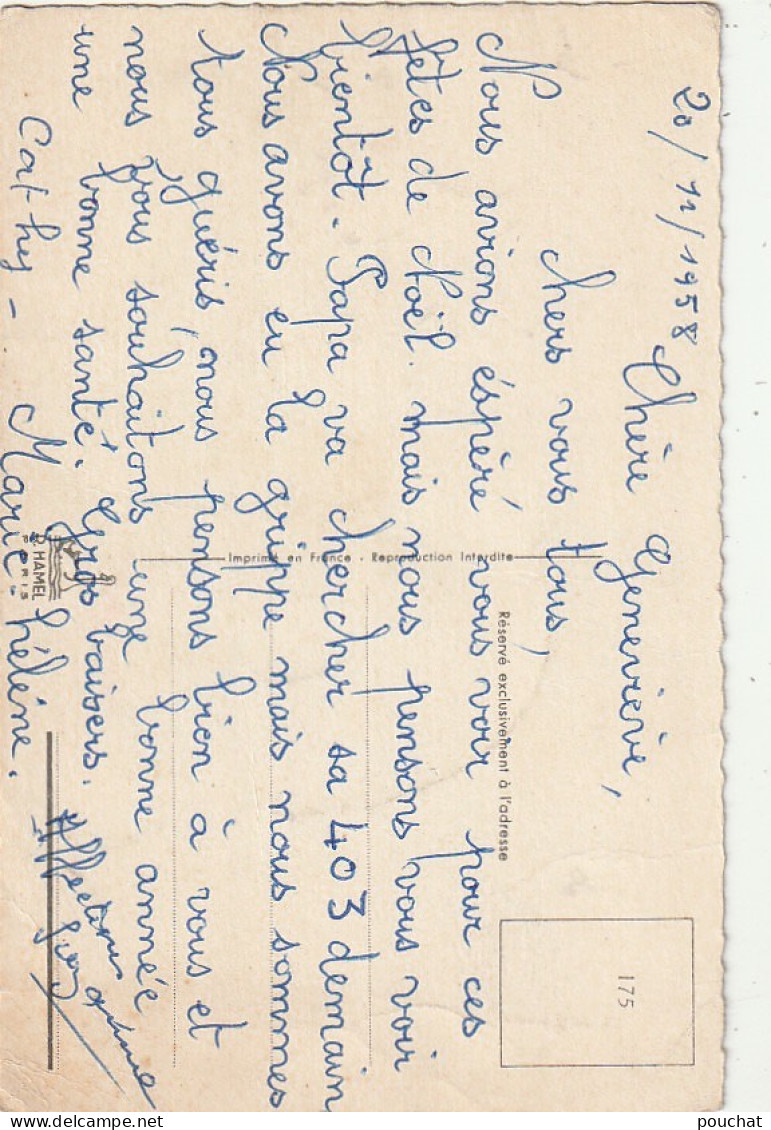 20/12/1958
Chère Geneviève,
chers vous tous,
Nous avions éspéré vous voir pour ces
fêtes de Noël. mais nous pensons vous voir
bientôt. Papa va chercher sa 403 demain
Nous avons eu la grippe mais nous sommes
tous guéris, nous pensons bien à vous et
nous vous souhaitons une bonne année
une bonne santé. Gros baisers.
Cathy - Marie hélène.
Imprimé en France - Reproduction Interdite
Réservé exclusivement à l'adresse
175
D. HAMEL
PARIS
delcampe.net
pouchat